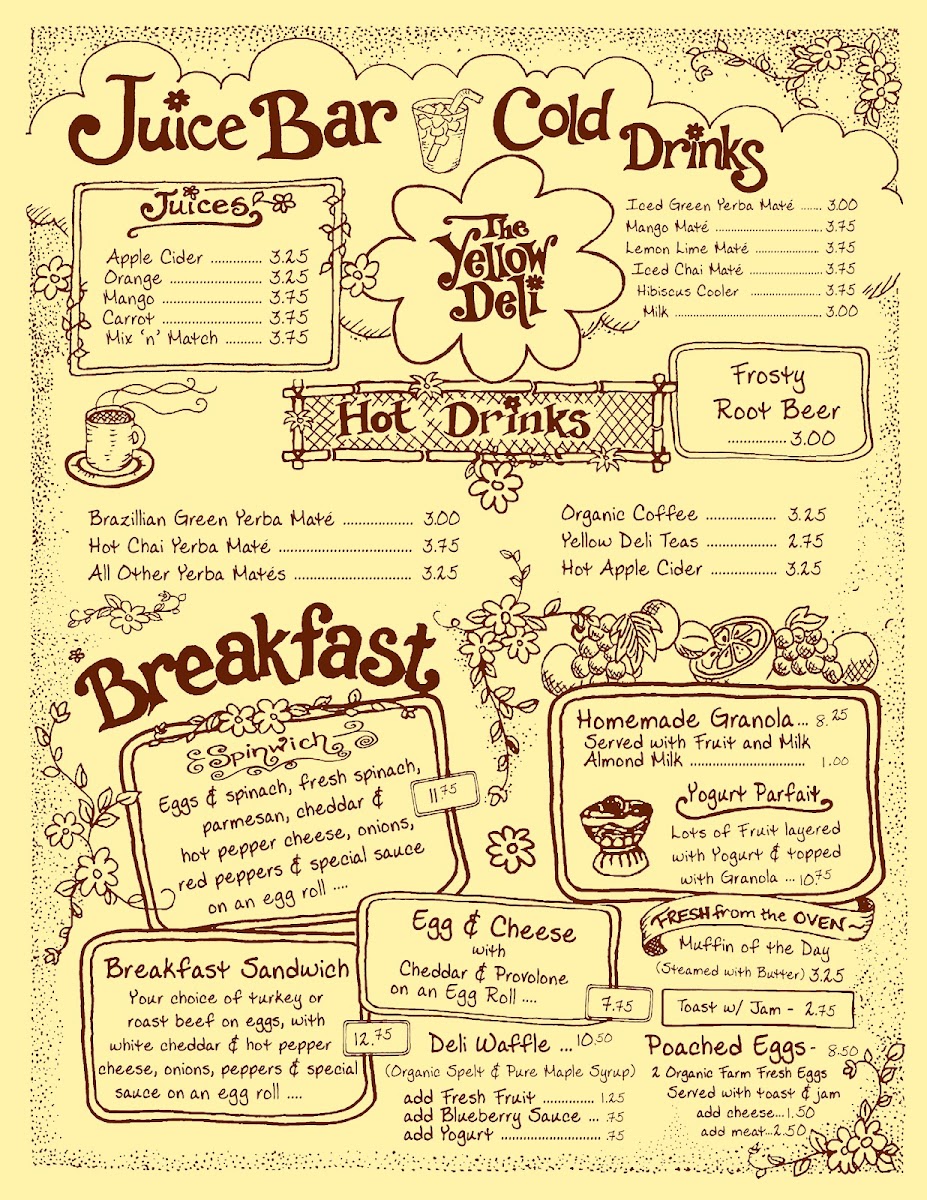 Juice Bar
Cold
Drinks
Juices
Apple Cider ............ 3.25
Orange ....................... 3.25
Mango ........................ 3.75
Carrot ........................ 3.75
Mix 'n' Match ......... 3.75
The
Yellow
Deli
Iced Green Yerba Maté ....... 3.00
Mango Maté ............................. 3.75
Lemon Lime Maté .................. 3.75
Iced Chai Maté ..................... 3.75
Hibiscus Cooler ................... 3.75
Milk ........................................ 3.00
Frosty
Root Beer
............... 3.00
Hot Drinks
Brazillian Green Yerba Maté ................. 3.00
Hot Chai Yerba Maté ................................ 3.75
All Other Yerba Matés ............................ 3.25
Organic Coffee ................. 3.25
Yellow Deli Teas ............... 2.75
Hot Apple Cider ................ 3.25
Breakfast
Spinwich
Eggs & spinach, fresh spinach,
parmesan, cheddar &
hot pepper cheese, onions,
red peppers & special sauce
on an egg roll ....
11.75
Homemade Granola... 8.25
Served with Fruit and Milk
Almond Milk ......................... 1.00
Yogurt Parfait
Lots of Fruit layered
with Yogurt & topped
with Granola ... 10.75
Breakfast Sandwich
Your choice of turkey or
roast beef on eggs, with
white cheddar & hot pepper
cheese, onions, peppers & special
sauce on an egg roll ....
12.75
Egg & Cheese
with
Cheddar & Provolone
on an Egg Roll ....
7.75
FRESH from the OVEN~
Muffin of the Day
(Steamed with Butter) 3.25
Toast w/ Jam - 2.75
Deli Waffle ... 10.50
(Organic Spelt & Pure Maple Syrup)
add Fresh Fruit ............. 1.25
add Blueberry Sauce ... .75
add Yogurt ......................... .75
Poached Eggs- 8.50
2 Organic Farm Fresh Eggs
Served with toast & jam
add cheese...1.50
add meat...2.50